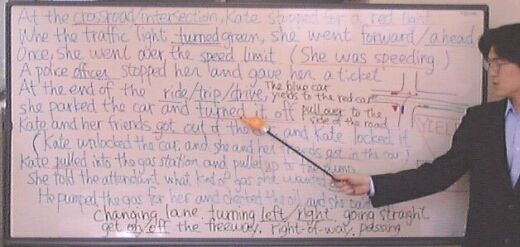 At the crossroad/intersection, Kate stopped for a red light.
Whe the traffic light turned green, she went forward/ahead
Once, She went over the speed limit (She was speeding)
A police officer stopped her and gave her a ticket
At the end of the ride/trip/drive,
The blue car
yields to the red car
she parked the car and turned it off
pull over to the
side of the road
Kate and her friends got out of the and Kate locked it
(Kate unlocked the car, and she and her friends got in the car)
Kate pulled into the gas station and pulled up to the
she told the attendant what kind of gas she wanted
He pumped the gas for her and checked the oil, and she
Changing lane, turning left/right, going straight
get on/off the freeway, right-of-way, passing